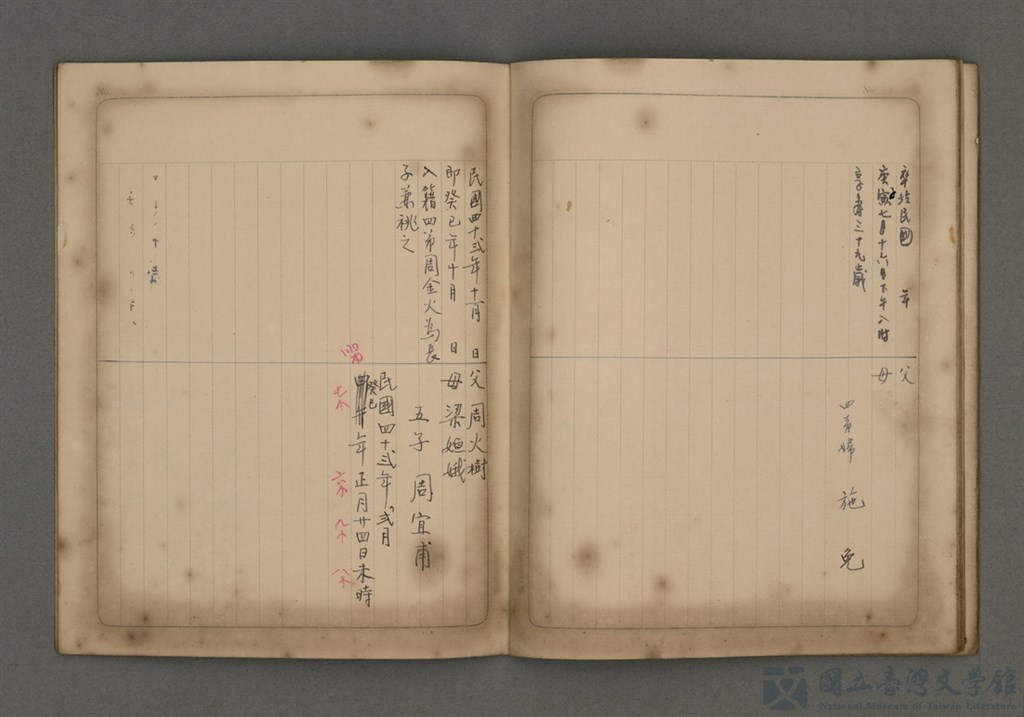 卒於民國　年
庚寅七月十六日下午八時
享壽三十九歲
父
母
四弟婦　施　免
民國四十弍年十一月　日
即癸巳年十月　日
入籍四弟周金火為長
子兼祧之
父　周火樹
母　梁姮娥
五子　周宜甫
民國四十弍年弍月
癸巳
年正月廿四日未時
國立臺灣文學館
National Museum of Taiwan Literature